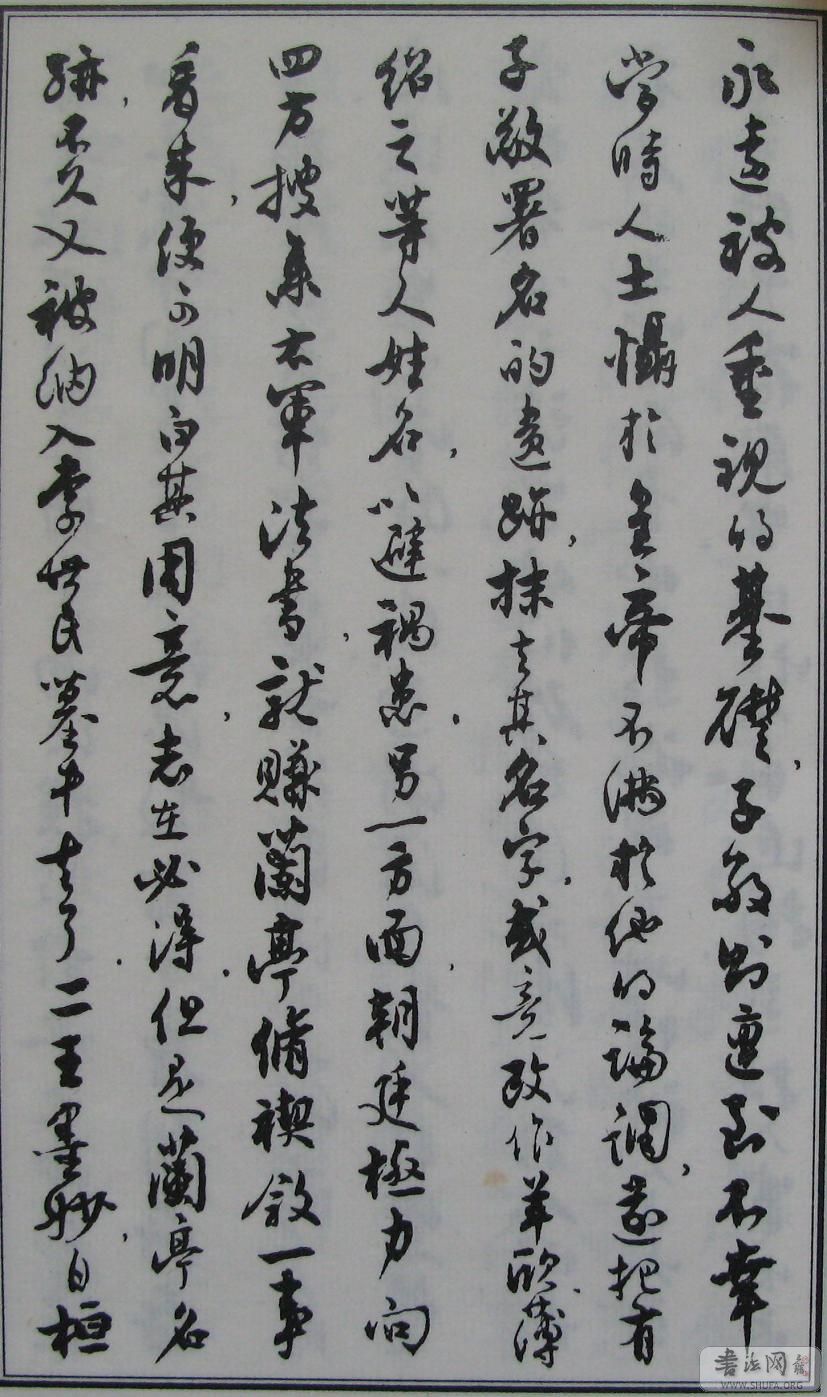 永遠被人重視的基礎，子敬則遭到不幸
當時人士懾於皇帝不滿於他的論調，遂把有
子敬署名的遺跡，抹去其名字，或竟改作羊欣、薄
紹之等人姓名，以避禍患，另一方面，朝廷極力向
四方搜集右軍法書，就賺蘭亭脩禊敘一事
看來，便可明白其用意，志在必得。但是蘭亭名
跡，不久又被納入李世民墓中去了。二王墨妙，自桓
书法网
WWW.SHUFA.ORG